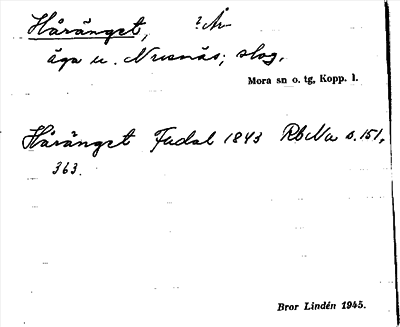 Håränget, ? År
äga u. Nusnäs; slog.
Mora sn o. tg, Kopp. l.
Håränget Fudal 1843 RbNa s. 151,
363.
Bror Lindén 1945.